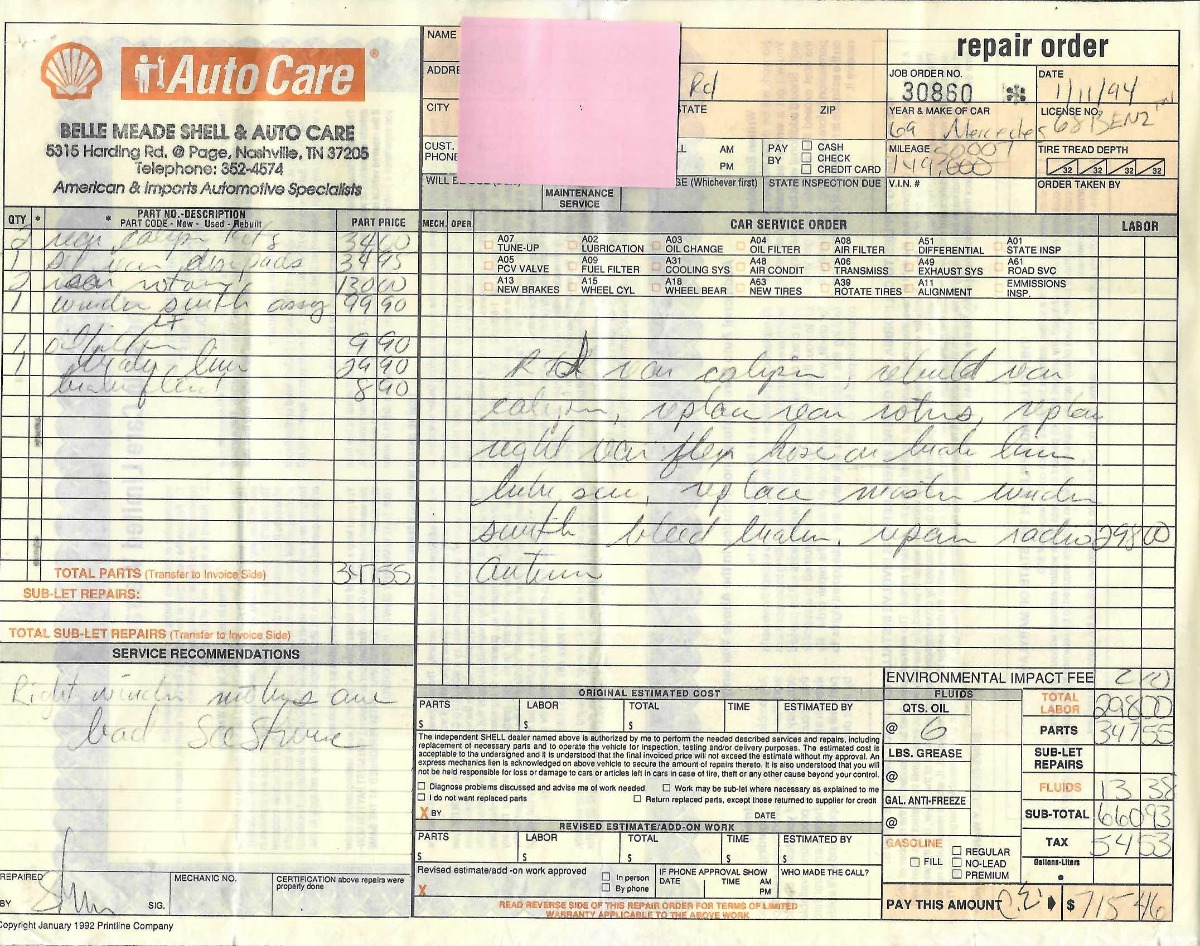 Auto Care ®
BELLE MEADE SHELL & AUTO CARE
5315 Harding Rd. @ Page, Nashville, TN 37205
Telephone: 352-4574
American & Imports Automotive Specialists
NAME
ADDRE
Rd
CITY STATE ZIP
CUST. PHONE AM PM
PAY BY CASH CHECK CREDIT CARD
WILL BE MAINTENANCE SERVICE (Whichever first) STATE INSPECTION DUE
repair order
JOB ORDER NO. 30860
DATE 1/11/94
YEAR & MAKE OF CAR 69 Mercedes
LICENSE NO. 68BENZ
MILEAGE 149,000
TIRE TREAD DEPTH
32 32 32 32
V.I.N. # ORDER TAKEN BY
QTY * * PART NO.-DESCRIPTION PART CODE - New - Used - Rebuilt PART PRICE
2 kits 34 00
1 pads 34 95
2 rear rotors 130 00
1 window switch assy 99 90
LT
1 oil filter 9 90
1 brake line 29 90
brake fluid 8 90
TOTAL PARTS (Transfer to Invoice Side) 347 55
SUB-LET REPAIRS:
TOTAL SUB-LET REPAIRS (Transfer to Invoice Side)
SERVICE RECOMMENDATIONS
Right window motors are
bad
REPAIRED BY SIG.
MECHANIC NO.
CERTIFICATION above repairs were properly done
Copyright January 1992 Printline Company
MECH. OPER. CAR SERVICE ORDER LABOR
A07 TUNE-UP A02 LUBRICATION A03 OIL CHANGE A04 OIL FILTER A08 AIR FILTER A51 DIFFERENTIAL A01 STATE INSP
A05 PCV VALVE A09 FUEL FILTER A31 COOLING SYS A48 AIR CONDIT A06 TRANSMISS A49 EXHAUST SYS A61 ROAD SVC
A13 NEW BRAKES A15 WHEEL CYL A18 WHEEL BEAR A63 NEW TIRES A39 ROTATE TIRES A11 ALIGNMENT EMMISSIONS INSP.
rear calipers, rebuild rear
calipers, replace rear rotors, replace
right rear flex hose on brake line
lube, replace master window
switch bleed brakes, repair radio 298 00
antenna
ENVIRONMENTAL IMPACT FEE 2 00
ORIGINAL ESTIMATED COST
PARTS $ LABOR $ TOTAL $ TIME ESTIMATED BY
The independent SHELL dealer named above is authorized by me to perform the needed described services and repairs, including
replacement of necessary parts and to operate the vehicle for inspection, testing and/or delivery purposes. The estimated cost is
acceptable to the undersigned and it is understood that the final invoiced price will not exceed the estimate without my approval. An
express mechanics lien is acknowledged on above vehicle to secure the amount of repairs thereto. It is also understood that you will
not be held responsible for loss or damage to cars or articles left in cars in case of fire, theft or any other cause beyond your control.
Diagnose problems discussed and advise me of work needed Work may be sub-let where necessary as explained to me
I do not want replaced parts Return replaced parts, except those returned to supplier for credit
X BY DATE
REVISED ESTIMATE/ADD-ON WORK
PARTS $ LABOR $ TOTAL $ TIME ESTIMATED BY
Revised estimate/add-on work approved In person By phone
X
IF PHONE APPROVAL SHOW DATE TIME AM PM
WHO MADE THE CALL?
READ REVERSE SIDE OF THIS REPAIR ORDER FOR TERMS OF LIMITED
WARRANTY APPLICABLE TO THE ABOVE WORK
FLUIDS
QTS. OIL
@ 6
LBS. GREASE
@
GAL. ANTI-FREEZE
@
GASOLINE
FILL REGULAR NO-LEAD PREMIUM
TOTAL LABOR 298 00
PARTS 347 55
SUB-LET REPAIRS
FLUIDS 13 38
SUB-TOTAL 660 93
TAX 54 53
Gallons-Liters
PAY THIS AMOUNT $ 715 46